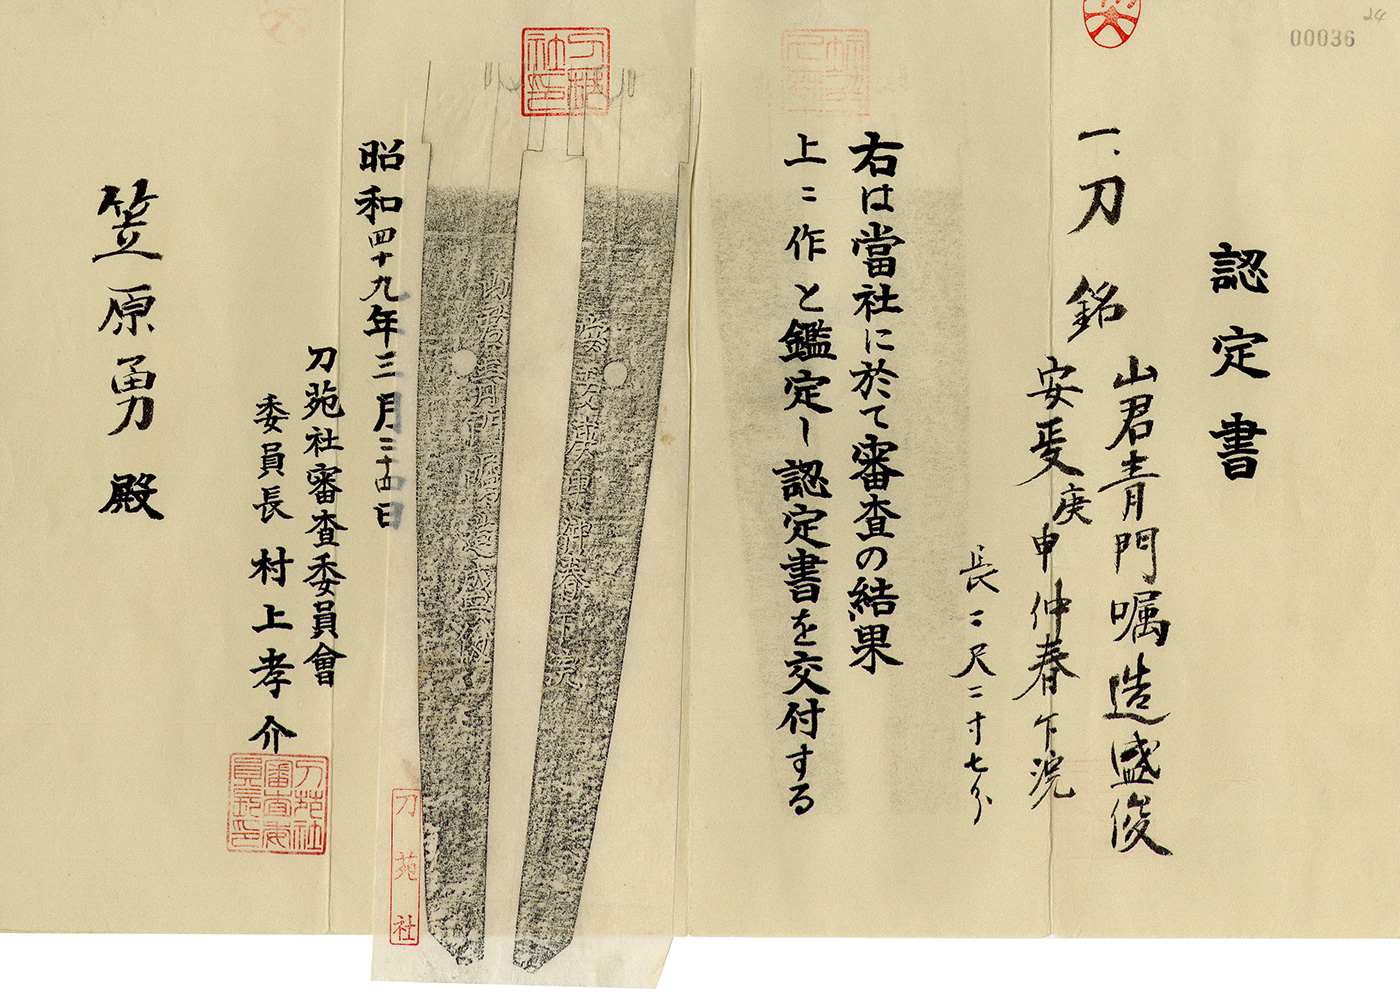 24
00036
認定書
一、刀 銘
山君青門嘱造盛俊
安政庚申仲春下浣
長二尺二寸七分
右は當社に於て審査の結果
上ニ作と鑑定し認定書を交付する
刀苑社印
昭和四十九年三月二十四日
刀苑社審査委員會
委員長 村上孝介
刀苑社審査委員長印
刀苑社
笠原勇殿